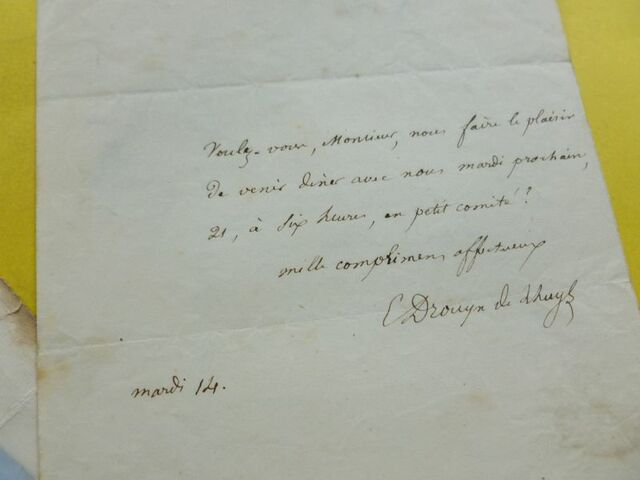 Voulez-vous, Monsieur, nous faire le plaisir
de venir diner avec nous mardi prochain,
21, à six heures, en petit comité?
mille complimens affectueux
E Drouyn de Lhuys
mardi 14.